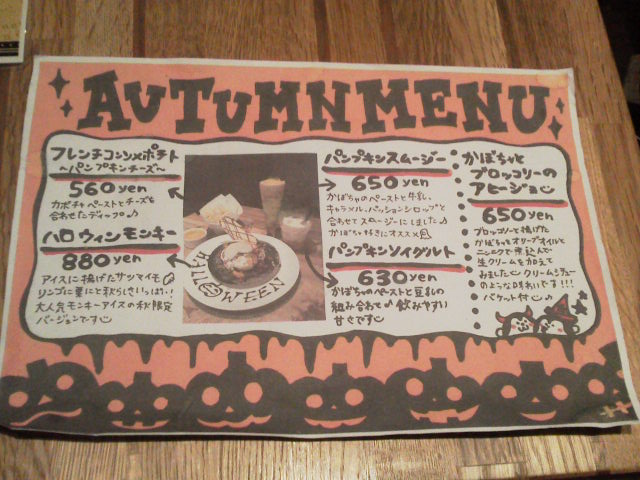 AUTUMN MENU
フレンチコンソメポテト
〜パンプキンチーズ〜
560yen
カボチャペーストとチーズを
合わせたディップ♪
ハロウィンモンキー
880yen
アイスに揚げたサツマイモ
リンゴに栗にと秋らしさいっぱい!
大人気モンキーアイスの秋限定
バージョンです
パンプキンスムージー
650yen
かぼちゃのペーストと牛乳、
キャラメル、パッションシロップと
合わせてスムージーにしました♪
かぼちゃ好きにオススメ
パンプキンソイグルト
630yen
かぼちゃのペーストと豆乳の
組み合わせ♪飲みやすい
甘さです
かぼちゃと
ブロッコリーの
アヒージョ
650yen
ブロッコリーと揚げた
かぼちゃをオリーブオイルと
ニンニクで煮込んで
生クリームを加えて
みました クリームシチュー
のような味わいです!!!
バケット付♪
WEEN